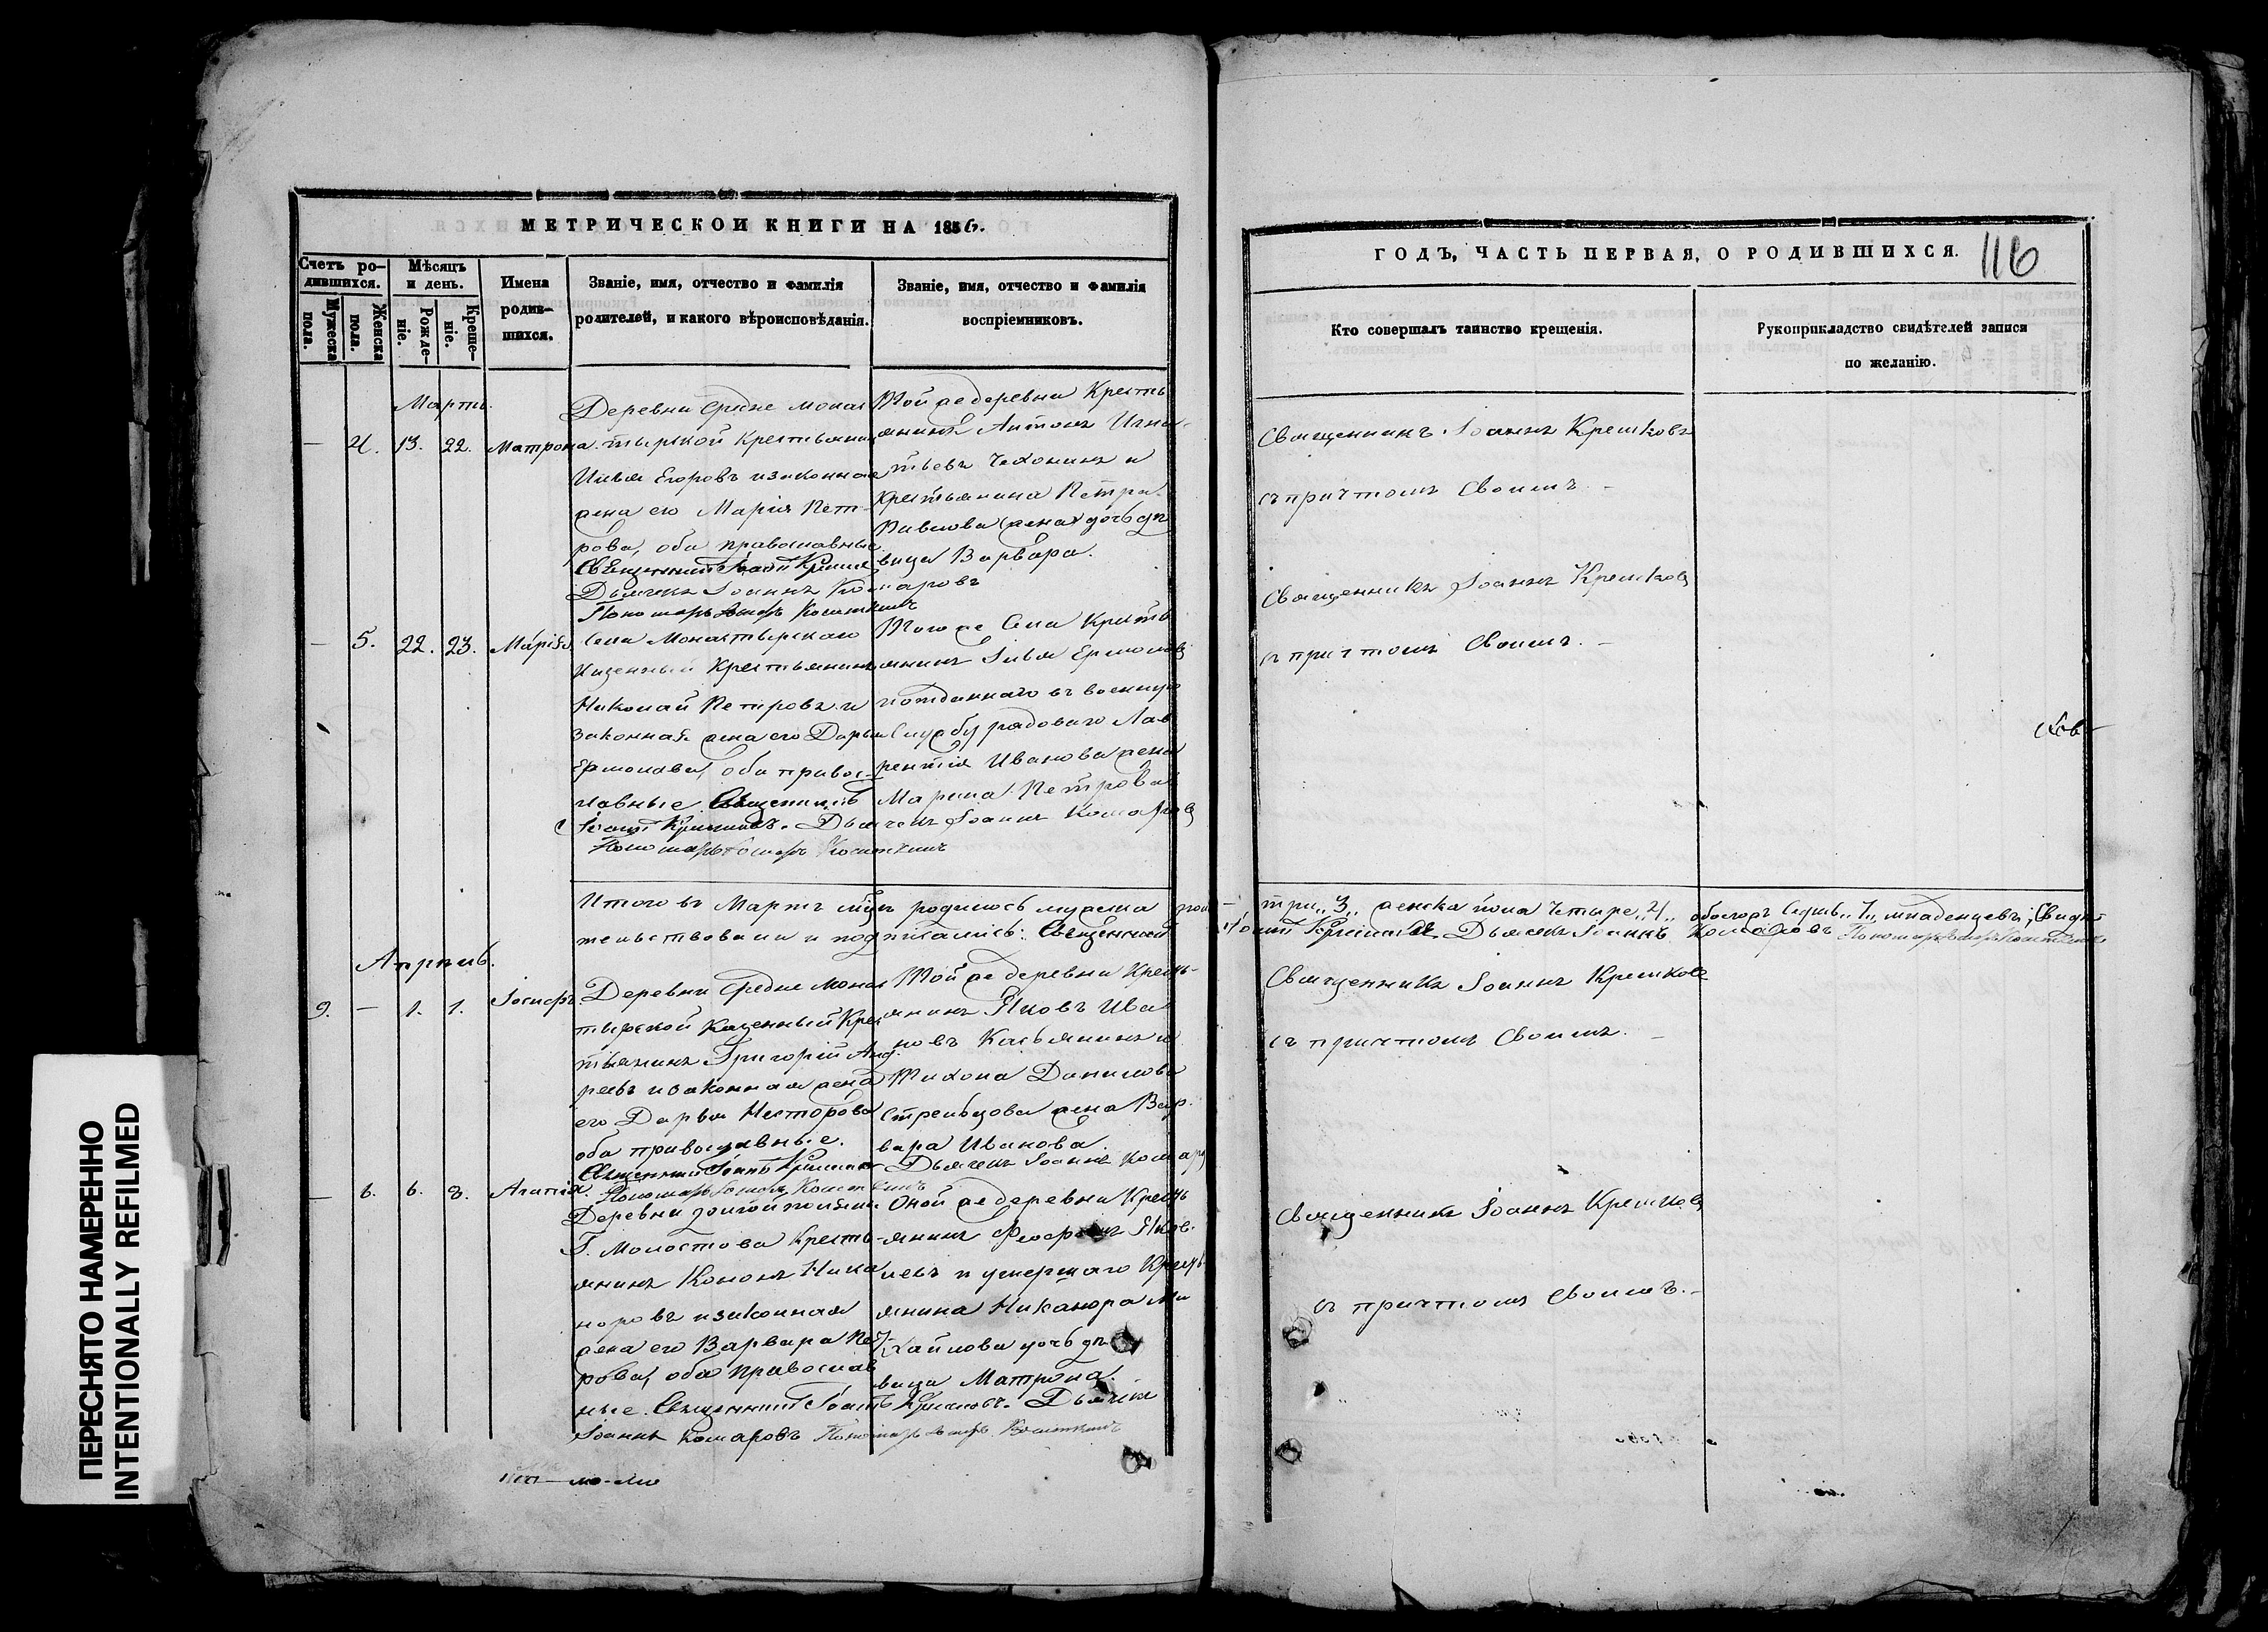 МЕТРИЧЕСКОЙ КНИГИ НА 1856.
Счетъ ро-
дившихся.
Мѣсяцъ
и день.
Мужеска
пола.
Женска
пола.
Рожде-
ніе.
Креще-
ніе.
Имена
родив-
шихся.
Званіе, имя, отчество и фамилія
родителей, и какого вѣроисповѣданія.
Званіе, имя, отчество и фамилія
воспріемниковъ.
Мартъ.
— 4. 13. 22. Матрона.
Деревни Средне монас
тырской Крестьянинъ
Илья Егоровъ изаконная
жена его Марія Пет-
рова, оба православные.
Священникъ Іоаннъ
Дьячекъ Іоаннъ Комаровъ
Пономарь
Той же деревни Кресть
янинъ Антонъ Игна-
тьевъ Чехонинъ и
крестьянина Петра
Павлова дочь дѣ
вица Варвара.
— 5. 22. 23. Марія.
Села Монастырскаго
Казенный Крестьянинъ
Николай Петровъ и
законная жена его Дарья
Ермолова, оба правос-
лавные. Священникъ
Іоаннъ Дьячекъ Іоаннъ Комаровъ
Пономарь
Того же Села Кресть
янинъ Илья Ермоловъ
иотданнаго въ военную
Службу рядоваго Лав
рентія Иванова жена
Марина Петрова
Итого въ Мартѣ мѣцѣ родилось мужеска пола
тельствовали и подписались: Священникъ
Апрѣль.
9. — 1. 1. Іосифъ.
Деревни Средне Монас
тырской Казенный Крес
тьянинъ Григорій Анд.
реевъ изаконная жена
его Дарья Несторова
оба православные.
Священникъ Іоаннъ Дьячекъ Іоаннъ Комаровъ
Пономарь
Той же деревни Кресть-
янинъ Яковъ Ива
новъ Касьянинъ и
Тихона Данилова
Стрельцова жена Вар.
вара Иванова
— 6. 6. 8. Агапія.
Деревни
Г. Молостова Кресть-
янинъ Кононъ Ника
норовъ изаконная
жена его Варвара Пет
рова, оба православ
ные. Священникъ Іоаннъ Дьячекъ
Іоаннъ Комаровъ Пономарь
Оной же деревни Кресть
янинъ Яков.
левъ и умершаго Кресть
янина Никанора Ми
хайлова дочь дѣ
вица Матрона.
ГОДЪ, ЧАСТЬ ПЕРВАЯ, О РОДИВШИХСЯ.
116
Кто совершалъ таинство крещенія.
Рукоприкладство свидѣтелей записи
по желанію.
Священникъ Іоаннъ Крешковъ
съ причтомъ Своимъ. —
Священникъ Іоаннъ Крешковъ
съ причтомъ Своимъ. —
— три „3„ женска пола четыре „4„ обоего Седмь „7„ младенцевъ; Свидѣ-
Іоаннъ Дьячекъ Іоаннъ Комаровъ Пономарь
Священникъ Іоаннъ Крешковъ
съ причтомъ Своимъ. —
Священникъ Іоаннъ Крешковъ
съ причтомъ своимъ. —
ПЕРЕСНЯТО НАМЕРЕННО
INTENTIONALLY REFILMED